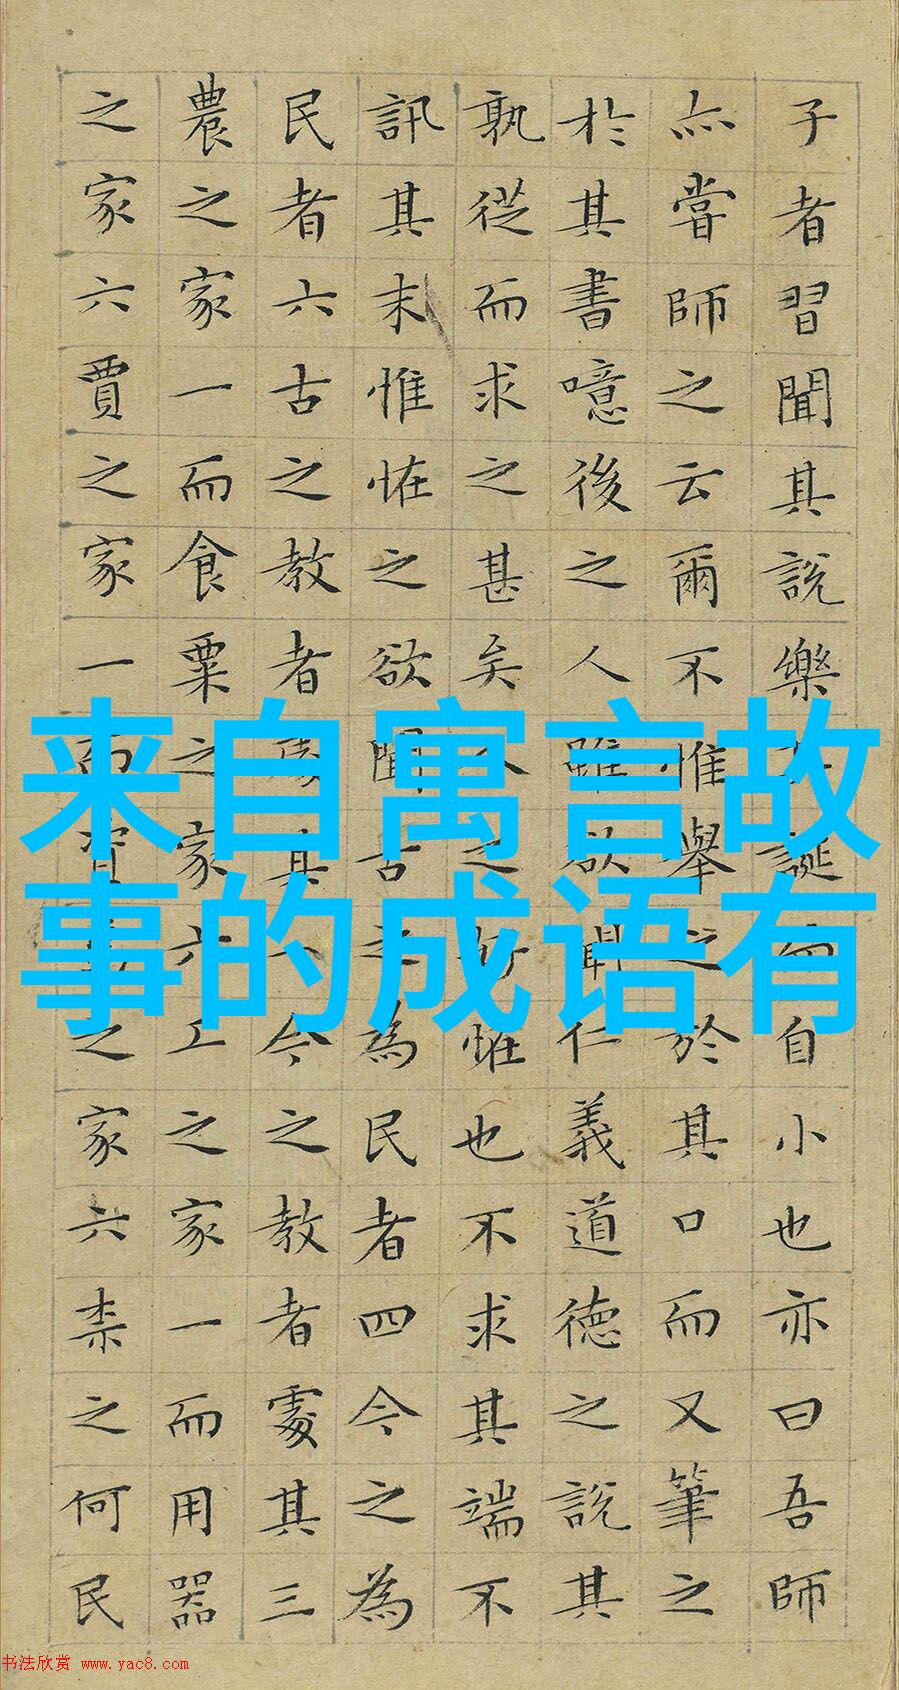 子者習聞其說樂其誕而自小也亦曰吾師
亦嘗師之云爾不惟舉之於其口而又筆之
於其書噫後之人雖欲聞仁義道德之說其
孰從而求之甚矣人之好怪也不求其端不
訊其末惟怪之欲聞古之為民者四今之為
民者六古之教者處其一今之教者處其三
農之家一而食粟之家六工之家一而用器
之家六賈之家一而資焉之家六柰之何民
来自寓言故
事的成语有
书法欣赏 www.yac8.com